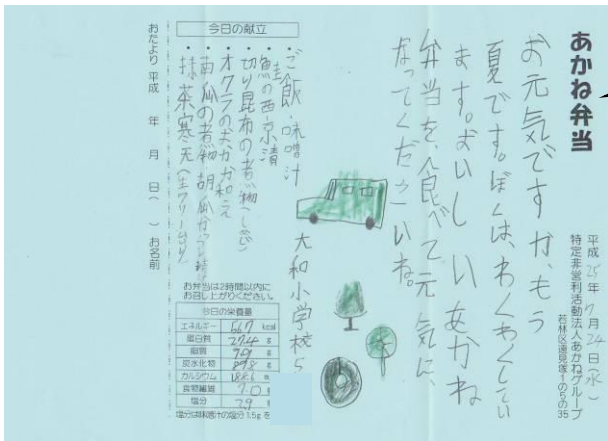 あかね弁当
平成25年7月24日(水)
特定非営利活動法人あかねグループ
若林区遠見塚1の5の35
お元気ですか、もう
夏です。ぼくは、わくわくしてい
ます。おいしいあかね
弁当を、食べて、元気に、
なってくださいね。
大和小学校5
今日の献立
・ご飯・味噌汁
・魚の西京漬
・切り昆布の煮物
・オクラのおかか和え
・南瓜の煮物 胡瓜
・抹茶寒天(生クリーム
お弁当は2時間以内に
お召し上がりください。
今日の栄養量
エネルギー 567 kcal
蛋白質 27.4 g
脂質 7.9 g
炭水化物 89.8 g
カルシウム 188.6 m
食物繊維 7.0 g
塩分 2.9 g
塩分は味噌汁の塩分1.5gを
おたより 平成 年 月 日( ) お名前